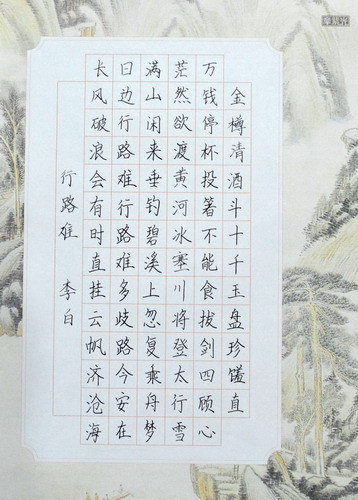 金樽清酒斗十千玉盘珍馐直
万钱停杯投箸不能食拔剑四顾心
茫然欲渡黄河冰塞川将登太行雪
满山闲来垂钓碧溪上忽复乘舟梦
日边行路难行路难多歧路今安在
长风破浪会有时直挂云帆济沧海
行路难 李白